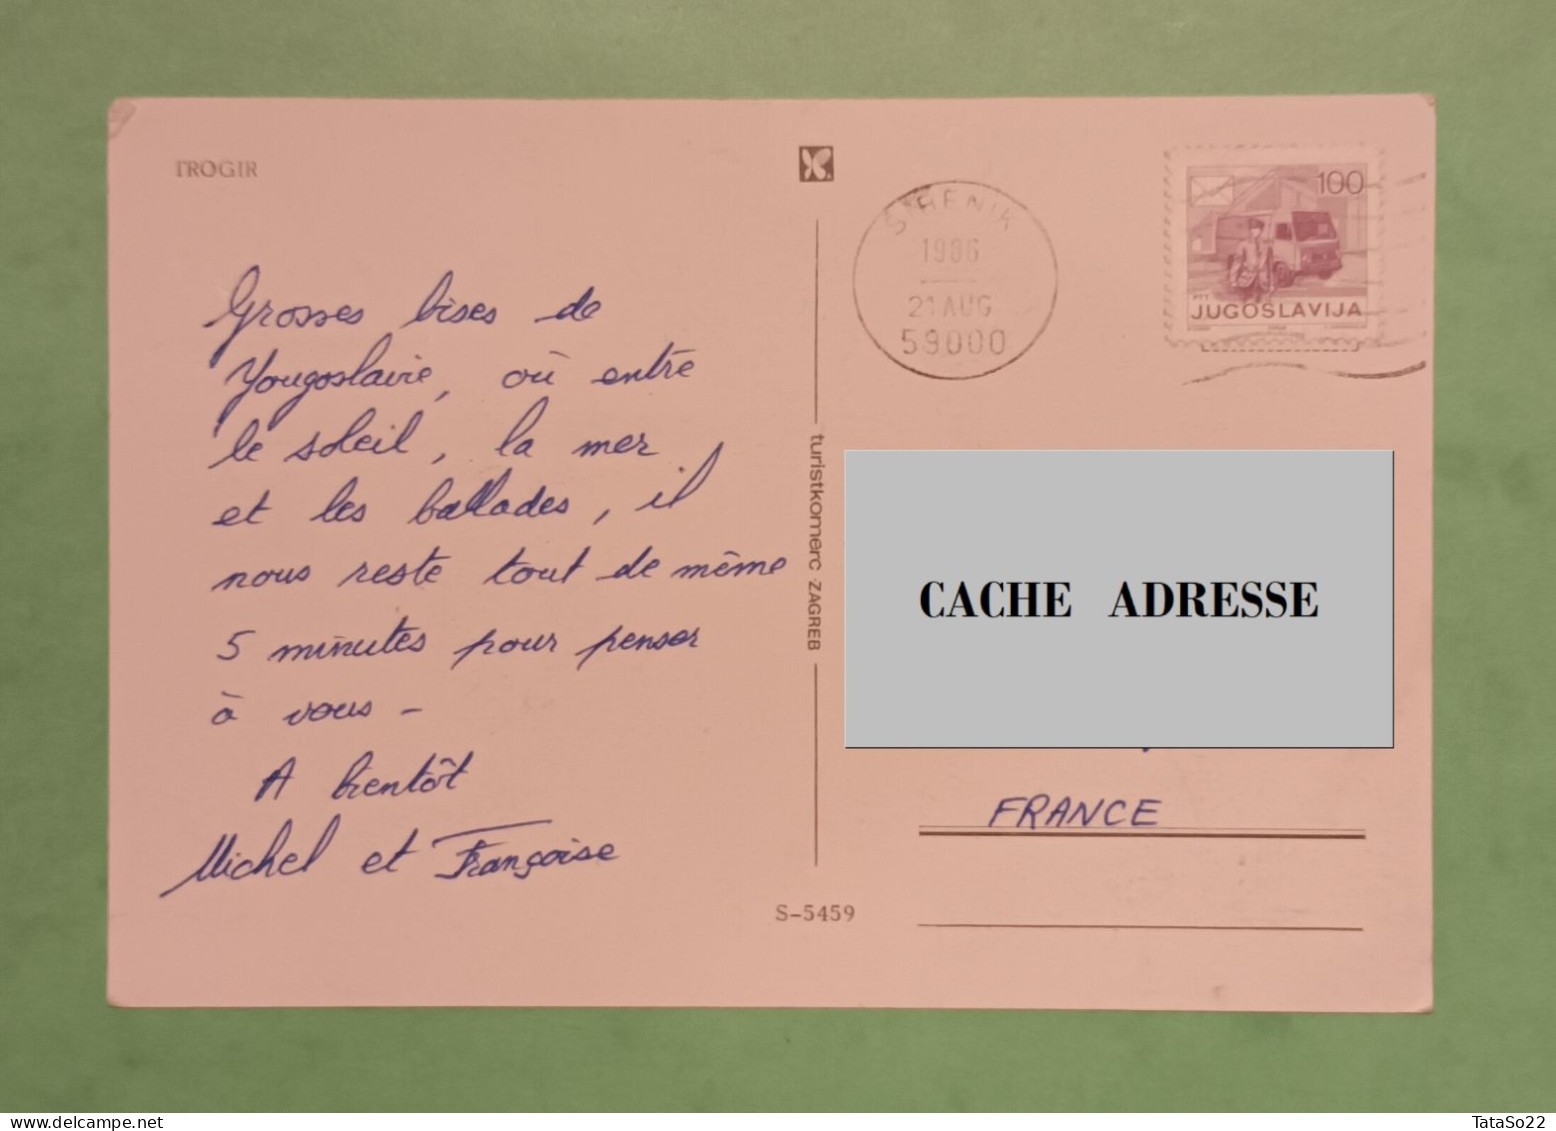 TROGIR
Grosses bises de
Yougoslavie, où entre
le soleil, la mer
et les ballades, il
nous reste tout de même
5 minutes pour penser
à vous -
A bientôt
Michel et Françoise
turistkomerc ZAGREB
S-5459
ŠIBENIK
1986
21 AUG
59000
100
PTT
JUGOSLAVIJA
CACHE ADRESSE
FRANCE
www.delcampe.net
TataSo22